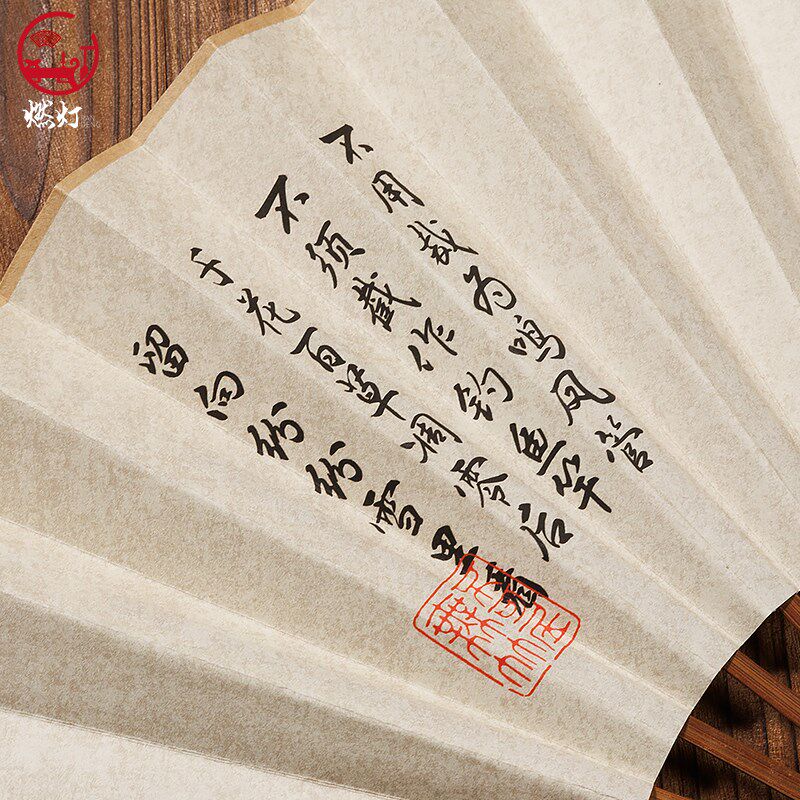 燃灯
不用裁为鸣凤管
不须截作钓鱼竿
千花百草凋零后
留向纷纷雪里看